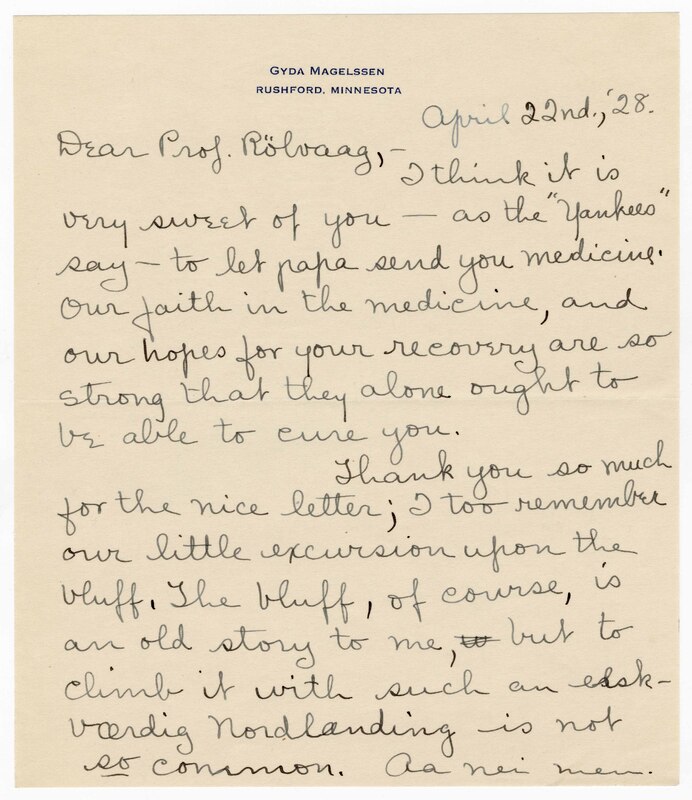 GYDA MAGELSSEN
RUSHFORD, MINNESOTA
April 22nd., '28.
Dear Prof. Rölvaag, -
I think it is
very sweet of you — as the "Yankees"
say — to let papa send you medicine.
Our faith in the medicine, and
our hopes for your recovery are so
strong that they alone ought to
be able to cure you.
Thank you so much
for the nice letter; I too remember
our little excursion upon the
bluff. The bluff, of course, is
an old story to me, but to
climb it with such an elsk-
værdig Nordlænding is not
so common. Aa nei men.